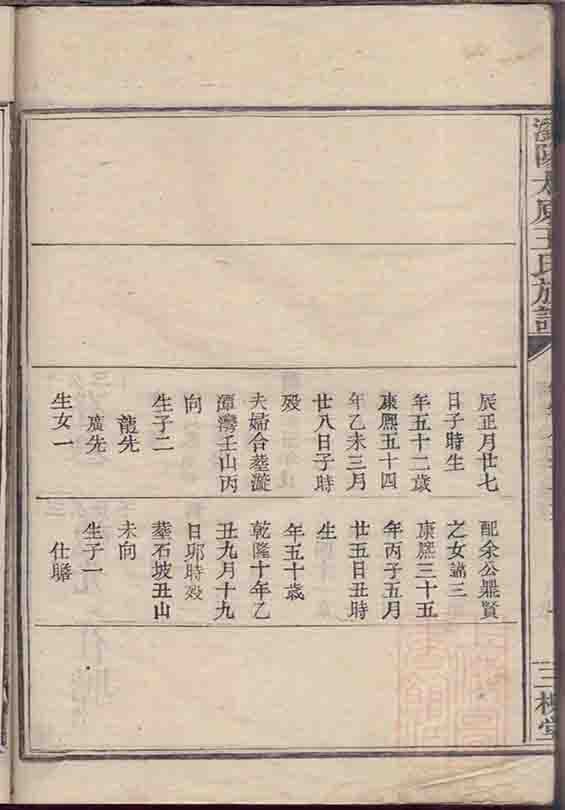 瀏陽太原王氏族譜
三槐堂
辰正月廿七
日子時生
年五十二歲
康熙五十四
年乙未三月
廿八日子時
歿
夫婦合塟漩
潭灣壬山丙
向
生子二
龍先
廣先
生女一
配余公鼎賢
之女諡三
康熙三十五
年丙子五月
廿五日丑時
生
年五十歲
乾隆十年乙
丑九月十九
日卯時歿
塟石坡丑山
未向
生子一
仕騰